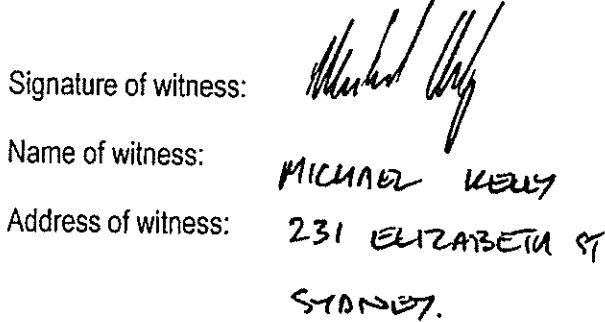 Signature of witness:
Name of witness: MICHAEL KELLY
Address of witness: 231 ELIZABETH ST
SYDNEY.